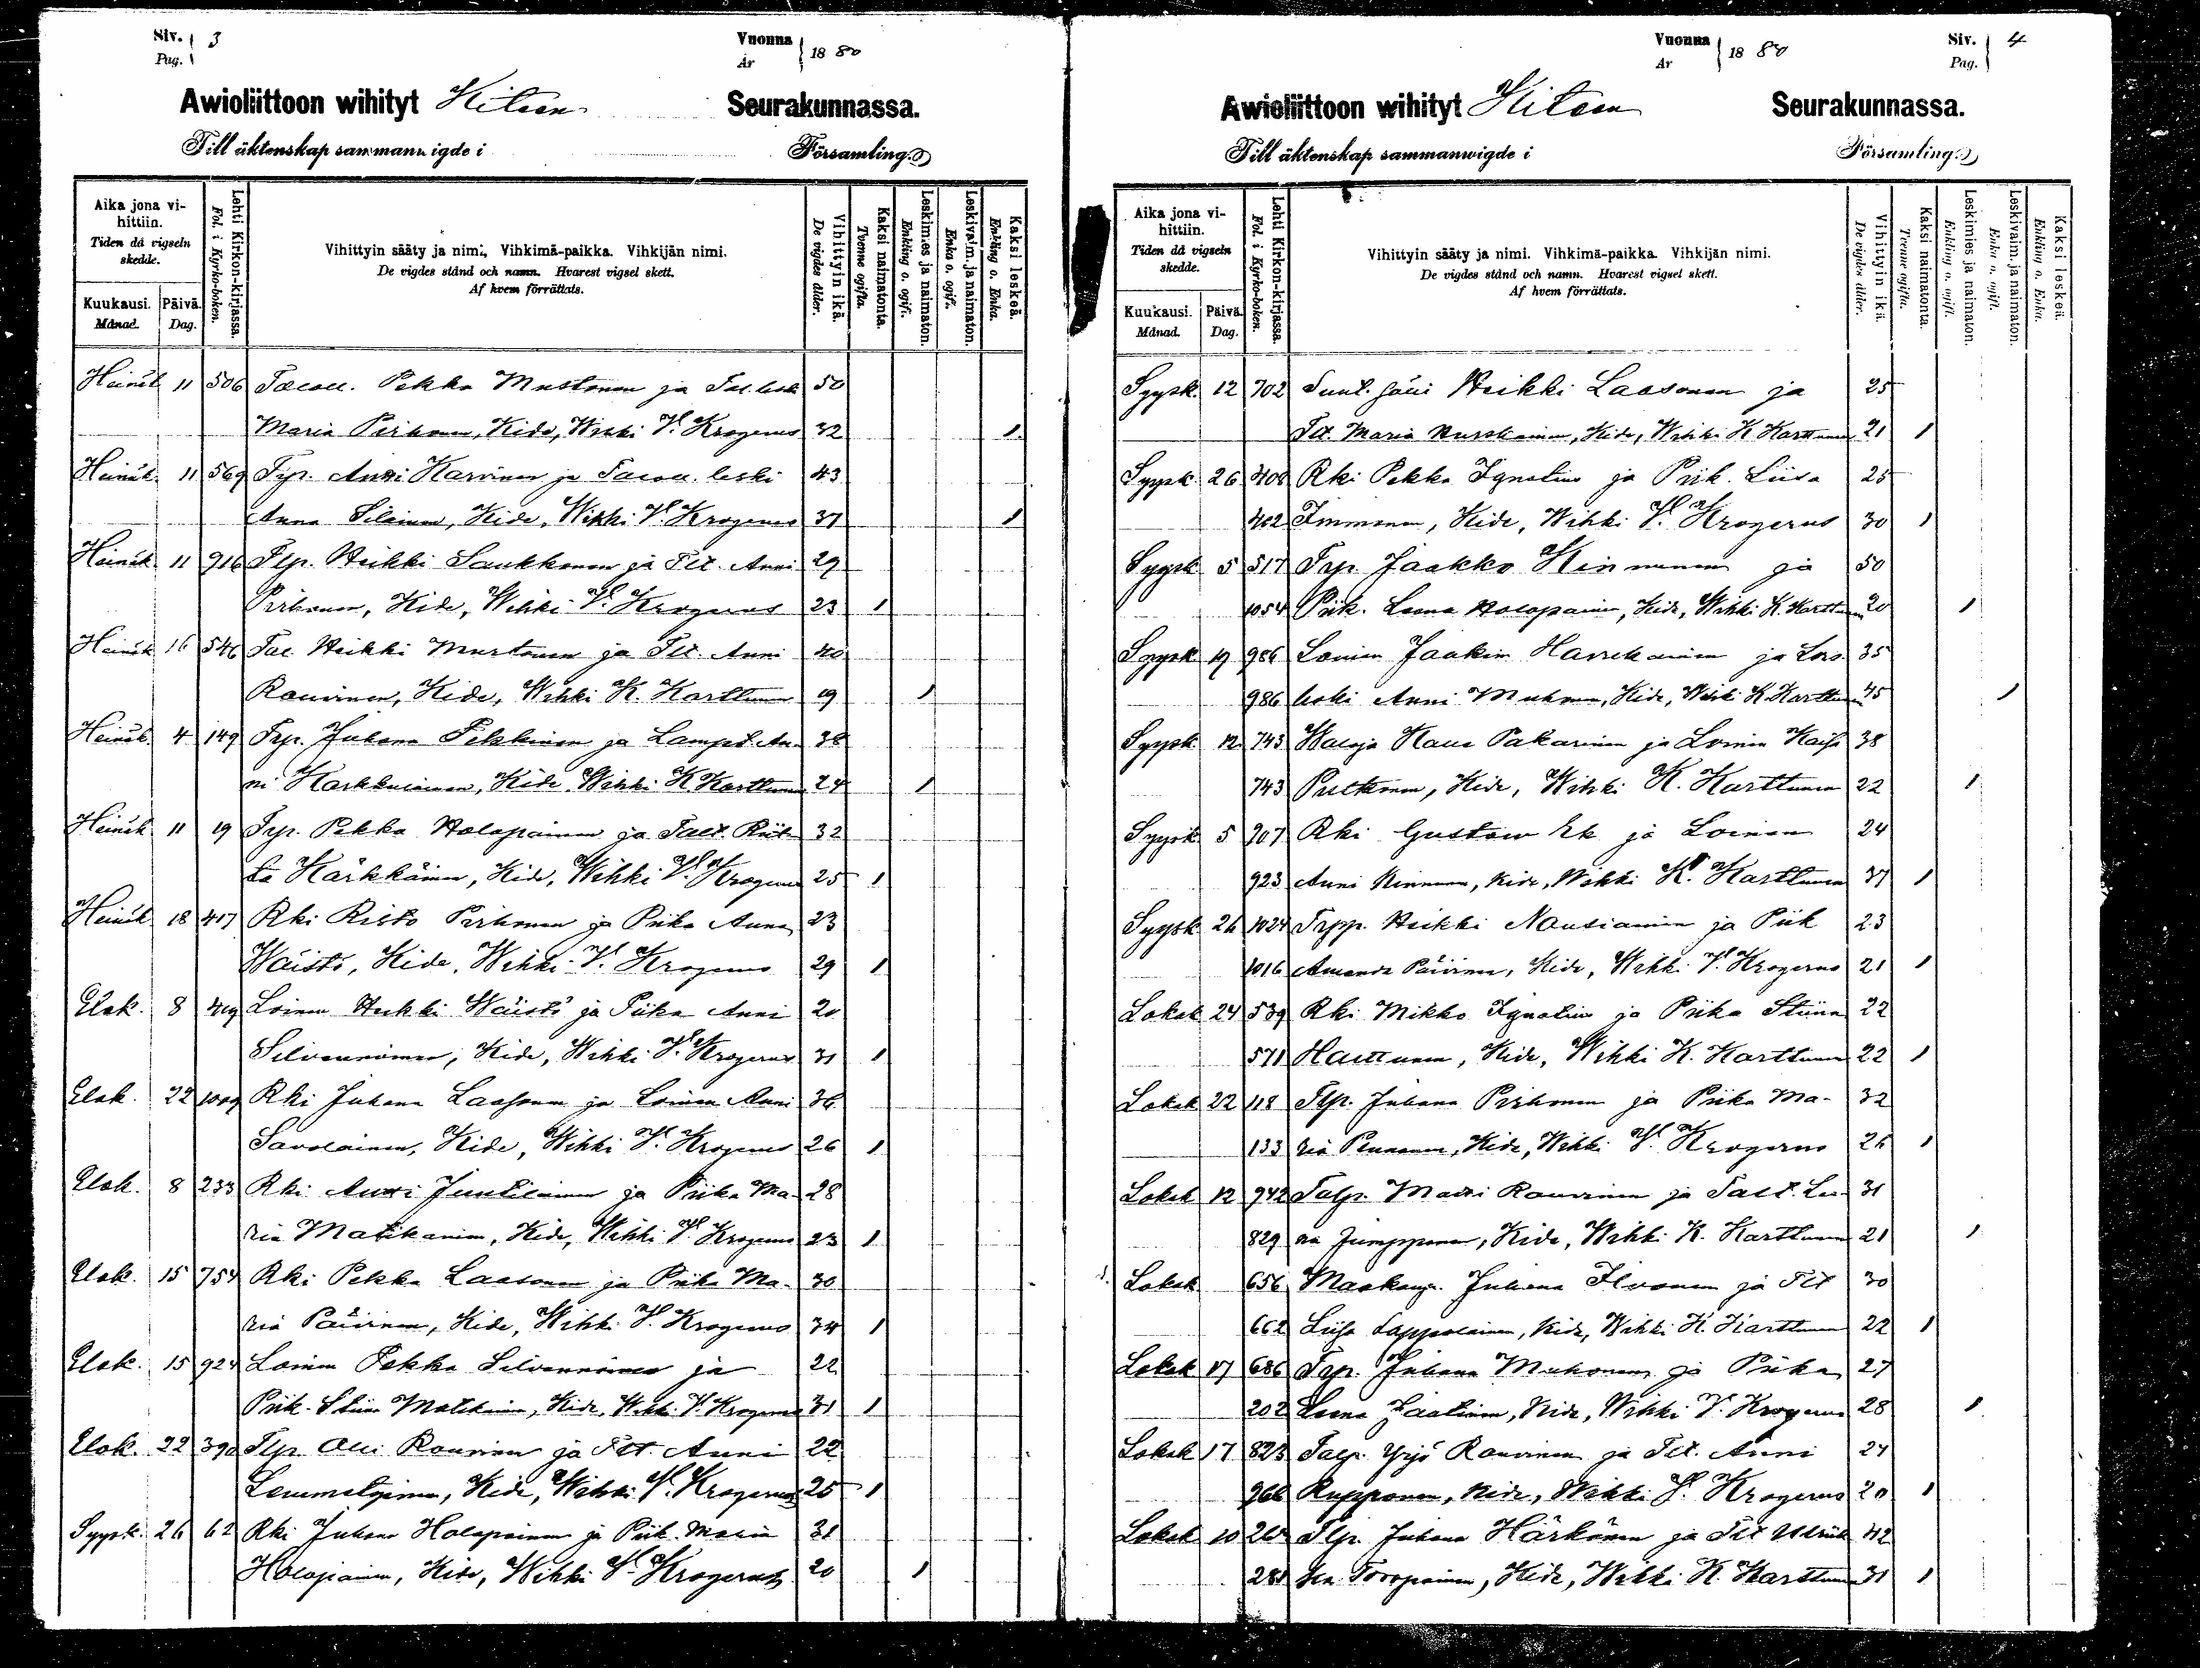 Siv. 3
Pag.
Vuonna 1880
År
Awioliittoon wihityt Kiteen Seurakunnassa.
Till äktenskap sammanwigde i Församling.
Aika jona vihittiin.
Tiden då vigseln skedde.
Kuukausi. Månad.
Päivä. Dag.
Lehti Kirkon-kirjassa.
Fol. i Kyrko-boken.
Vihittyin sääty ja nimi. Vihkimä-paikka. Vihkijän nimi.
De vigdes stånd och namn. Hvarest vigsel skett.
Af hvem förrättats.
Vihittyin ikä.
De vigdes ålder.
Kaksi naimatonta.
Tvenne ogifta.
Leskimies ja naimaton.
Enkling o. ogift.
Leskivaim. ja naimaton.
Enka o. ogift.
Kaksi leskeä.
Enkling o. Enka.
Heinäk 11 506 Pekka Mustonen ja 50
Maria Pirhonen, Kide, Wihki V. Krogerus 32 1
Heinäk. 11 569 Trp. Antti Karvinen ja leski 43
Anna Silainen, Kide, Wihki V. Krogerus 37 1
Heinäk 11 916 Tlp. Heikki Saukkonen ja Tlt. Anni 29
Pirhonen, Kide, Wihki V. Krogerus 23 1
Heinäk 16 546 Tal. Heikki Mustonen ja Tlt. Anni 40
Rouvinen, Kide, Wihki K. Karttunen 19 1
Heinäk. 4 149 Trp. Juhana Pekkinen ja Lampd. An- 38
ni Karkkulainen, Kide, Wihki K. Karttunen 24 1
Heinäk 11 19 Trp. Pekka Holopainen ja Talt. Riit- 32
ta Härkkänen, Kide, Wihki V. Krogerus 25 1
Heinäk 18 417 Rki Risto Pirhonen ja Piika Anna 23
Wäistö, Kide, Wihki V. Krogerus 29 1
Elok. 8 419 Loinen Heikki Wäistö ja Piika Anni 20
Silvennoinen, Kide, Wihki V. Krogerus 31 1
Elok. 22 1009 Rki Juhana Laasonen ja Loinen Anni 36
Savolainen, Kide, Wihki V. Krogerus 26 1
Elok. 8 233 Rki Antti Juutilainen ja Piika Ma- 28
ria Matikainen, Kide, Wihki V. Krogerus 23 1
Elok. 15 754 Rki Pekka Laasonen ja Piika Ma- 30
ria Päivinen, Kide, Wihki V. Krogerus 34 1
Elok. 15 924 Loinen Pekka Silvennoinen ja 22
Piik. Stiina Matikainen, Kide, Wihki V. Krogerus 31 1
Elok. 22 390 Tlp. Olli Rouvinen ja Tlt. Anni 22
Kide, Wihki V. Krogerus 25 1
Syysk. 26 62 Rki Juhana Holopainen ja Piik. Maria 31
Holopainen, Kide, Wihki V. Krogerus 20 1
Vuonna 1880
År
Siv. 4
Pag.
Awioliittoon wihityt Kiteen Seurakunnassa.
Till äktenskap sammanwigde i Församling.
Aika jona vihittiin.
Tiden då vigseln skedde.
Kuukausi. Månad.
Päivä. Dag.
Lehti Kirkon-kirjassa.
Fol. i Kyrko-boken.
Vihittyin sääty ja nimi. Vihkimä-paikka. Vihkijän nimi.
De vigdes stånd och namn. Hvarest vigsel skett.
Af hvem förrättats.
Vihittyin ikä.
De vigdes ålder.
Kaksi naimatonta.
Tvenne ogifta.
Leskimies ja naimaton.
Enkling o. ogift.
Leskivaim. ja naimaton.
Enka o. ogift.
Kaksi leskeä.
Enkling o. Enka.
Syysk. 12 702 Heikki Laasonen ja 25
Tlt. Maria Kurskainen, Kide, Wihki K Karttunen 21 1
Syysk 26 408 Rki Pekka Ignatius ja Piik. Liisa 25
402 Immonen, Kide, Wihki V. Krogerus 30 1
Syysk 5 517 Trp. Jaakko Kinnunen ja 50
1054 Piik. Leena Holopainen, Kide, Wihki K. Karttunen 20 1
Syysk 19 986 Loinen Jaakim Harrikainen ja Lois. 35
986 leski Anni Muhonen, Kide, Wihki K. Karttunen 45 1
Syysk 12 743 Pakarinen ja Loinen Kaisa 38
743 Putkonen, Kide, Wihki K. Karttunen 22 1
Syysk 5 207 Rki Gustaw Ek ja Loinen 24
923 Anni Kinnunen, Kide, Wihki K. Karttunen 37 1
Syysk 26 1024 Trpp. Heikki Nousiainen ja Piik 23
1016 Amanda Päivinen, Kide, Wihki V. Krogerus 21 1
Lokak 24 539 Rki Mikko Ignatius ja Piika Stiina 22
571 Hauttunen, Kide, Wihki K. Karttunen 22 1
Lokak 22 118 Tlp. Juhana Pirhonen ja Piika Ma- 32
133 ria Pennanen, Kide, Wihki V. Krogerus 26 1
Lokak 12 942 Talp. Matti Rouvinen ja Talt. Lee- 31
829 na Jumpponen, Kide, Wihki K. Karttunen 21 1
Lokak 656 Juhana Ilvonen ja Tlt 30
662 Liisa Lappalainen, Kide, Wihki K. Karttunen 22 1
Lokak 17 686 Trp. Juhana Muhonen ja Piika 27
202 Leena Laatinen, Kide, Wihki V. Krogerus 28 1
Lokak 17 823 Talp. Yrjö Rouvinen ja Tlt. Anni 24
966 Rupponen, Kide, Wihki V. Krogerus 20 1
Lokak 10 260 Tlp. Juhana Härkönen ja Tlt Ulriik 42
281 ka Toropainen, Kide, Wihki K. Karttunen 31 1